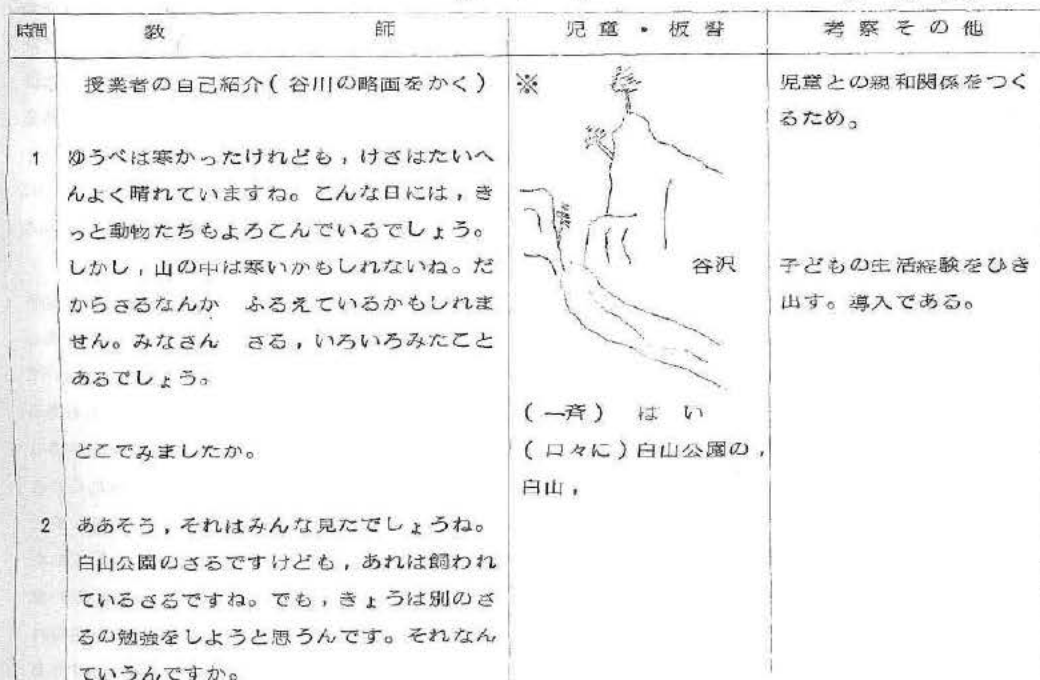 時間 教師 児童・板書 考察その他
授業者の自己紹介(谷川の略画をかく) ※ 児童との親和関係をつく
るため。
1 ゆうべは寒かったけれども,けさはたいへ
んよく晴れていますね。こんな日には,き
っと動物たちもよろこんでいるでしょう。
しかし,山の中は寒いかもしれないね。だ 谷沢 子どもの生活経験をひき
からさるなんか ふるえているかもしれま 出す。導入である。
せん。みなさん さる,いろいろみたこと
あるでしょう。
(一斉) はい
どこでみましたか。 (口々に)白山公園の,
白山,
2 ああそう,それはみんな見たでしょうね。
白山公園のさるですけども,あれは飼われ
ているさるですね。でも,きょうは別のさ
るの勉強をしようと思うんです。それなん
ていうんですか。